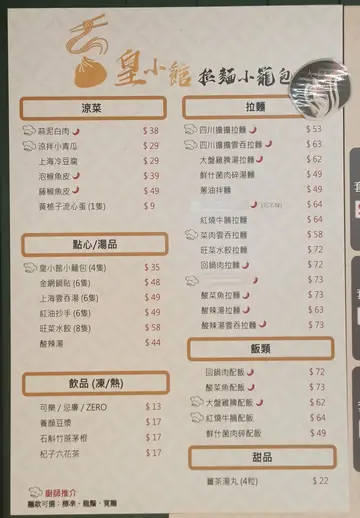 皇小館 拉麵小籠包
涼菜
蒜泥白肉 $38
涼拌小青瓜 $29
上海冷豆腐 $29
泡椒魚皮 $39
藤椒魚皮 $49
黃梔子流心蛋 (1隻) $9
點心/湯品
皇小館小籠包 (4隻) $35
金網鍋貼 (6隻) $48
上海雲吞湯 (6隻) $49
紅油抄手 (6隻) $49
旺菜水餃 (8隻) $58
酸辣湯 $44
飲品 (凍/熱)
可樂 / 忌廉 / ZERO $13
養顏豆漿 $17
石斛竹蔗茅根 $17
杞子六花茶 $17
廚師推介
麵款可選:標準、龍鬚、寬麵
拉麵
四川擔擔拉麵 $53
四川擔擔雲吞拉麵 $63
大盤雞脾湯拉麵 $62
鮮什菌肉碎湯麵 $49
蔥油拌麵 $49
$64
紅燒牛腩拉麵 $64
菜肉雲吞拉麵 $58
旺菜水餃拉麵 $72
回鍋肉拉麵 $72
$73
酸菜魚拉麵 $73
酸辣湯拉麵 $63
酸辣湯雲吞拉麵 $73
飯類
回鍋肉配飯 $72
酸菜魚配飯 $73
大盤雞脾配飯 $62
紅燒牛腩配飯 $64
鮮什菌肉碎配飯 $49
甜品
薑茶湯丸 (4粒) $22